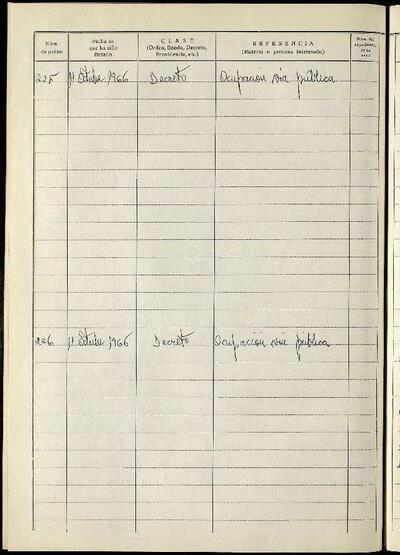 Núm. de orden
Fecha en que ha sido dictado
CLASE
(Orden, Bando, Decreto, Providencia, etc.)
REFERENCIA
(Materia o persona interesada)
Núm. del expediente
225 Octubre 1966 Decreto Ocupación vía pública
226 Octubre 1966 Decreto Ocupación vía pública